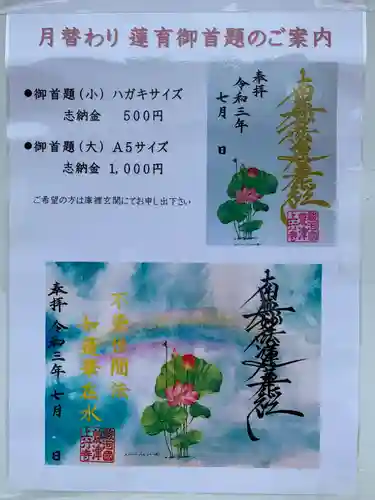 月替わり 蓮育御首題のご案内
●御首題(小) ハガキサイズ
志納金 500円
●御首題(大) A5サイズ
志納金 1,000円
ご希望の方は庫裡玄関にてお申し出下さい
奉拝
令和三年
七月 日
南無妙法蓮華経
奉拝 令和三年 七月 日
不染世間法
如蓮華在水
南無妙法蓮華経